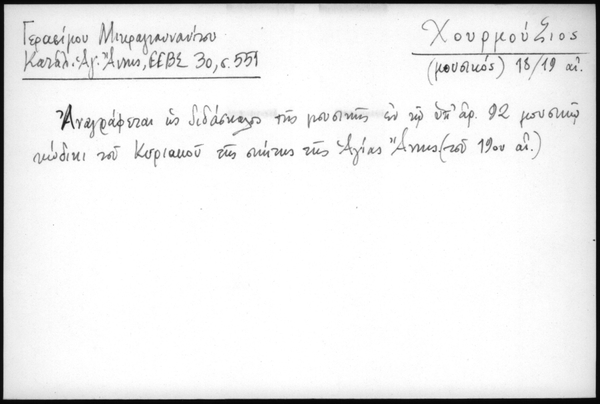 Γερασίμου Μικραγιαννανίτου
Κατάλ. Ἁγ. Ἄννης, ΕΕΒΣ 30, σ. 551
Χουρμούζιος
(μουσικός) 18/19 αἰ.
Ἀναγράφεται ὡς διδάσκαλος τῆς μουσικῆς ἐν τῷ ὑπ' ἀρ. 92 μουσικῷ
κώδικι τοῦ Κυριακοῦ τῆς σκήτης τῆς Ἁγίας Ἄννης (τοῦ 19ου αἰ.)